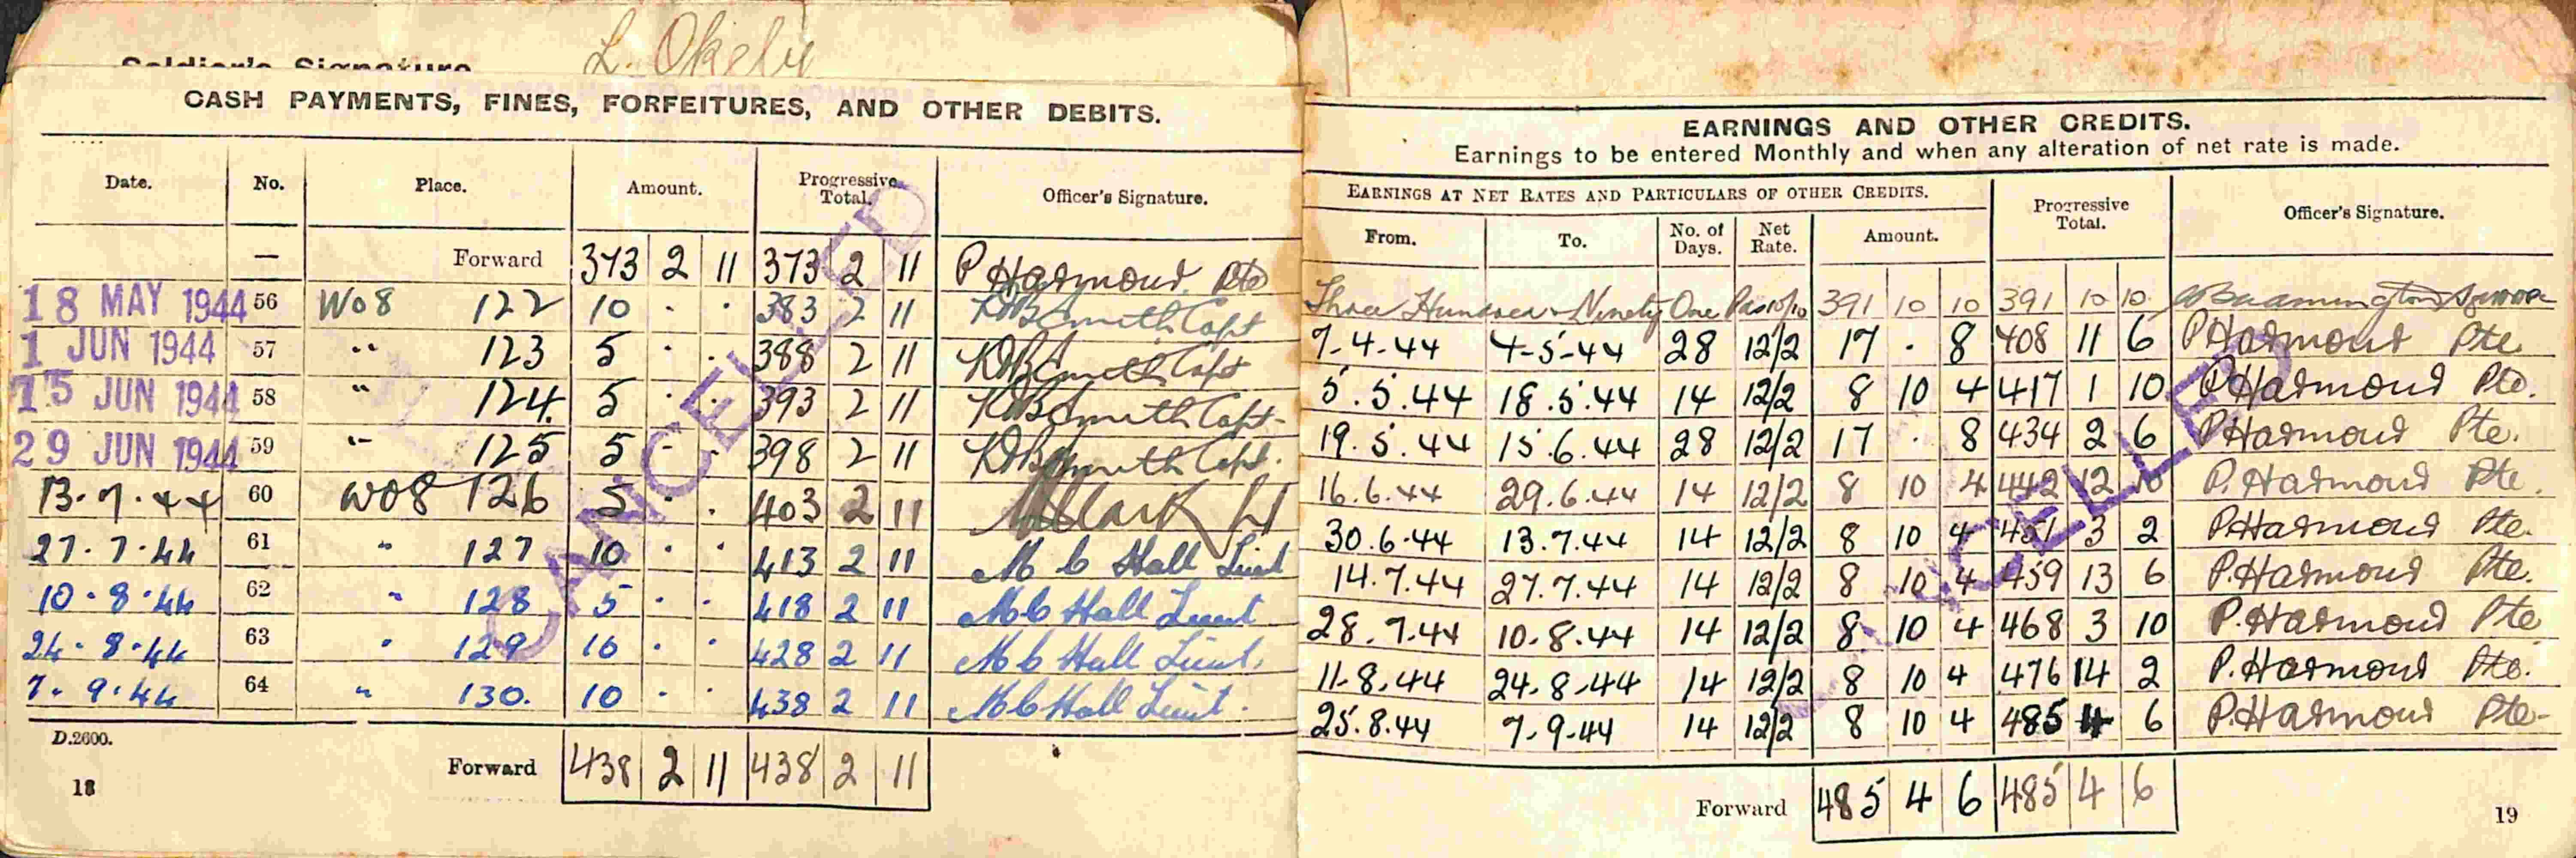 Soldier's Signature L. Okely
CASH PAYMENTS, FINES, FORFEITURES, AND OTHER DEBITS.
Date. No. Place. Amount. Progressive Total. Officer's Signature.
— Forward 373 2 11 373 2 11 P Harmond Pte
18 MAY 1944 56 W08 122 10 . . 383 2 11 Smith Capt
1 JUN 1944 57 " 123 5 . . 388 2 11 Smith Capt
15 JUN 1944 58 " 124. 5 . . 393 2 11 Smith Capt.
29 JUN 1944 59 " 125 5 - . 398 2 11 Smith Capt.
13.7.44 60 W08 126 5 . . 403 2 11 Clark Lt
27.7.44 61 " 127 10 . . 413 2 11 M C Hall Lieut
10.8.44 62 " 128 5 . . 418 2 11 M C Hall Lieut
24.8.44 63 " 129 10 . . 428 2 11 M C Hall Lieut.
7.9.44 64 " 130. 10 . . 438 2 11 M C Hall Lieut.
D.2600.
Forward 438 2 11 438 2 11
18
CANCELLED
EARNINGS AND OTHER CREDITS.
Earnings to be entered Monthly and when any alteration of net rate is made.
EARNINGS AT NET RATES AND PARTICULARS OF OTHER CREDITS. Progressive Total. Officer's Signature.
From. To. No. of Days. Net Rate. Amount.
Three Hundred & Ninety One Pds 10/10 391 10 10 391 10 10
7-4-44 4-5-44 28 12/2 17 . 8 408 11 6 P Harmond Pte
5.5.44 18.5.44 14 12/2 8 10 4 417 1 10 P Harmond Pte.
19.5.44 15.6.44 28 12/2 17 . 8 434 2 6 P Harmond Pte.
16.6.44 29.6.44 14 12/2 8 10 4 442 12 10 P. Harmond Pte.
30.6.44 13.7.44 14 12/2 8 10 4 451 3 2 P. Harmond Pte.
14.7.44 27.7.44 14 12/2 8 10 4 459 13 6 P. Harmond Pte.
28.7.44 10.8.44 14 12/2 8 10 4 468 3 10 P. Harmond Pte
11-8.44 24.8-44 14 12/2 8 10 4 476 14 2 P. Harmond Pte.
25.8.44 7-9-44 14 12/2 8 10 4 485 4 6 P. Harmond Pte-
Forward 485 4 6 485 4 6
19
CANCELLED